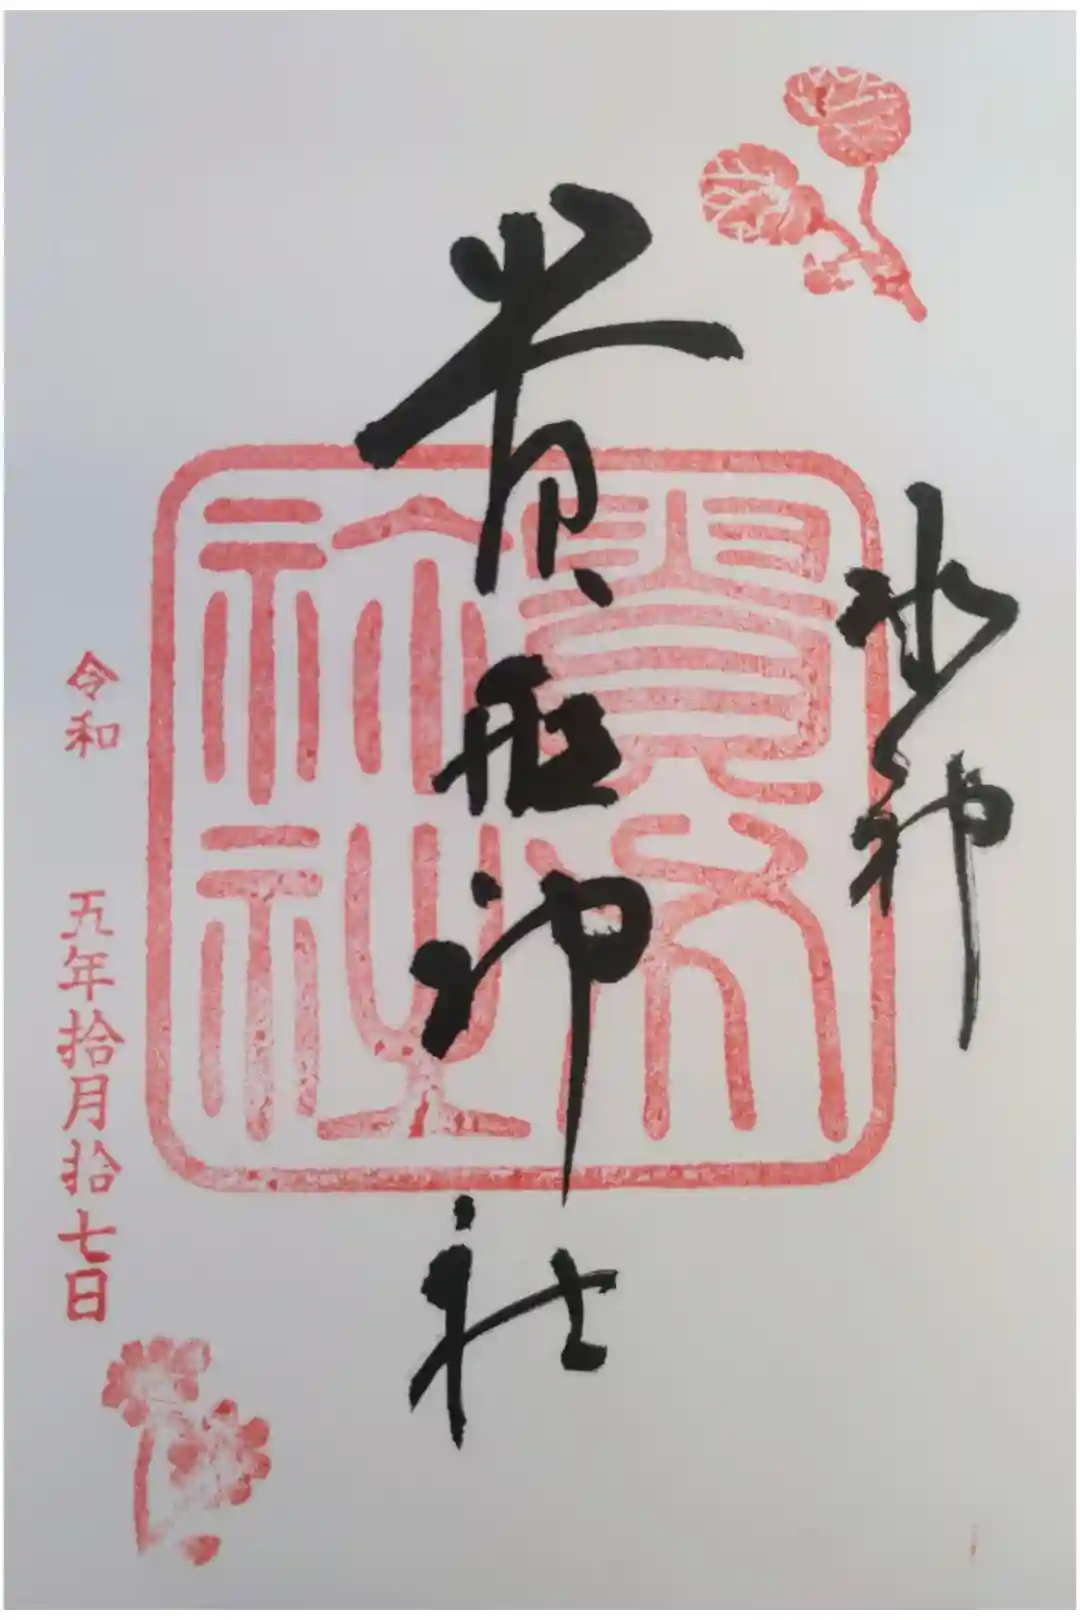 水神
貴船神社
貴布
祢社
令和 五年拾月拾七日